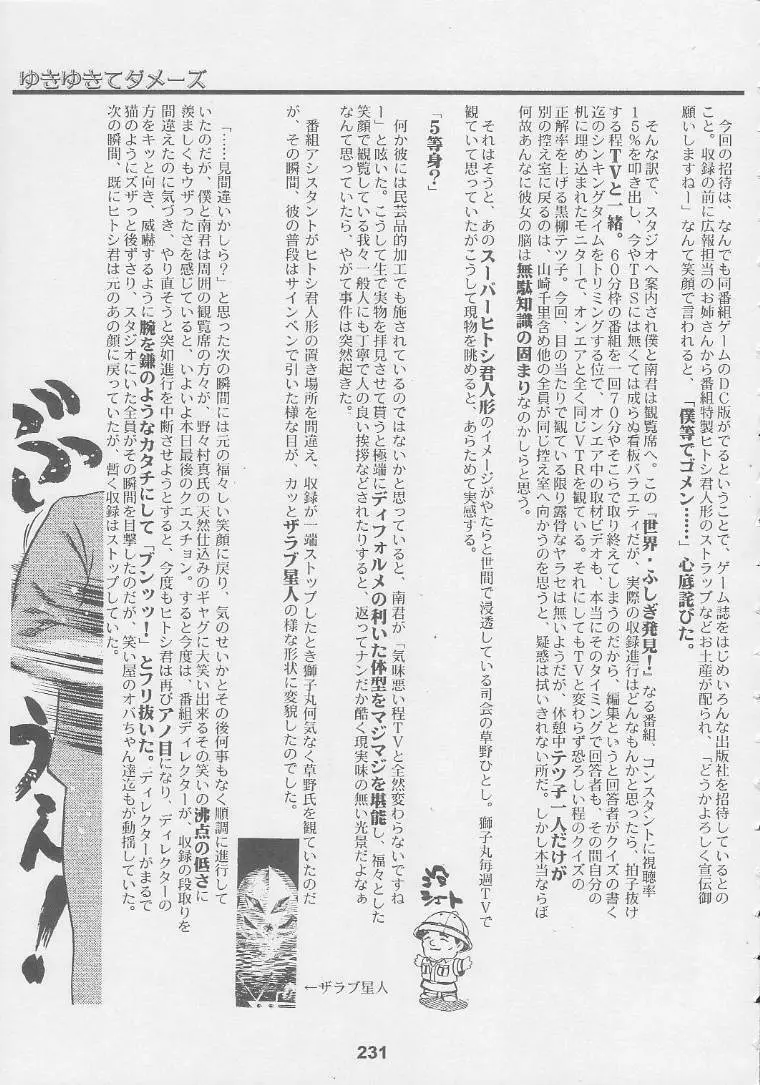 ゆきゆきてダメーズ
今回の招待は、なんでも同番組ゲームのDC版がでるということで、ゲーム誌をはじめいろんな出版社を招待しているとの
こと。収録の前に広報担当のお姉さんから番組特製ヒトシ君人形のストラップなどお土産が配られ、「どうかよろしく宣伝御
願いしますねー」なんて笑顔で言われると、「僕等でゴメン……」心底詫びた。
そんな訳で、スタジオへ案内され僕と南君は観覧席へ。この『世界・ふしぎ発見！』なる番組、コンスタントに視聴率
15％を叩き出し、今やTBSには無くては成らぬ看板バラエティだが、実際の収録進行はどんなもんかと思ったら、拍子抜け
する程TVと一緒。60分枠の番組を一回70分やそこらで取り終えてしまうのだから、編集というと回答者がクイズの書く
迄のシンキングタイムをトリミングする位で、オンエア中の取材ビデオも、本当にそのタイミングで回答者も、その間自分の
机に埋め込まれたモニターで、オンエアと全く同じVTRを観ている。それにしてもTVと変わらず恐ろしい程のクイズの
正解率を上げる黒柳テツ子。今回、目の当たりで観ている限り露骨なヤラセは無いようだが、休憩中テツ子一人だけが
別の控え室に戻るのは、山崎千里含め他の全員が同じ控え室へ向かうのを思うと、疑惑は拭いきれない所だ。しかし本当ならば
何故あんなに彼女の脳は無駄知識の固まりなのかしらと思う。
それはそうと、あのスーパーヒトシ君人形のイメージがやたらと世間で浸透している司会の草野ひとし。獅子丸毎週TVで
観ていて思っていたがこうして現物を眺めると、あらためて実感する。
「５等身？」
何か彼には民芸品的加工でも施されているのではないかと思っていると、南君が「気味悪い程TVと全然変わらないですね
ー」と呟いた。こうして生で実物を拝見させて貰うと極端にディフォルメの利いた体型をマジマジを堪能し、福々とした
笑顔で観覧している我々一般人にも丁寧で人の良い挨拶などされたりすると、返ってナンだか酷く現実味の無い光景だよなぁ
なんて思っていたら、やがて事件は突然起きた。
番組アシスタントがヒトシ君人形の置き場所を間違え、収録が一端ストップしたとき獅子丸何気なく草野氏を観ていたのだ
が、その瞬間、彼の普段はサインペンで引いた様な目が、カッとザラブ星人の様な形状に変貌したのでした。
「……見間違いかしら？」と思った次の瞬間には元の福々しい笑顔に戻り、気のせいかとその後何事もなく順調に進行して
いたのだが、僕と南君は周囲の観覧席の方々が、野々村真氏の天然仕込みのギャグに大笑い出来るその笑いの沸点の低さに
羨ましくもウザったさを感じていると、いよいよ本日最後のクエスチョン。すると今度は、番組ディレクターが、収録の段取りを
間違えたのに気づき、やり直そうと突如進行を中断させようとすると、今度もヒトシ君は再びアノ目になり、ディレクターの
方をキッと向き、威嚇するように腕を鎌のようなカタチにして「ブンッッ！」とフリ抜いた。ディレクターがまるで
猫のようにズザっと後ずさり、スタジオにいた全員がその瞬間を目撃したのだが、笑い屋のオバちゃん達迄もが動揺していた。
次の瞬間、既にヒトシ君は元のあの顔に戻っていたが、暫く収録はストップしていた。
←ザラブ星人
231